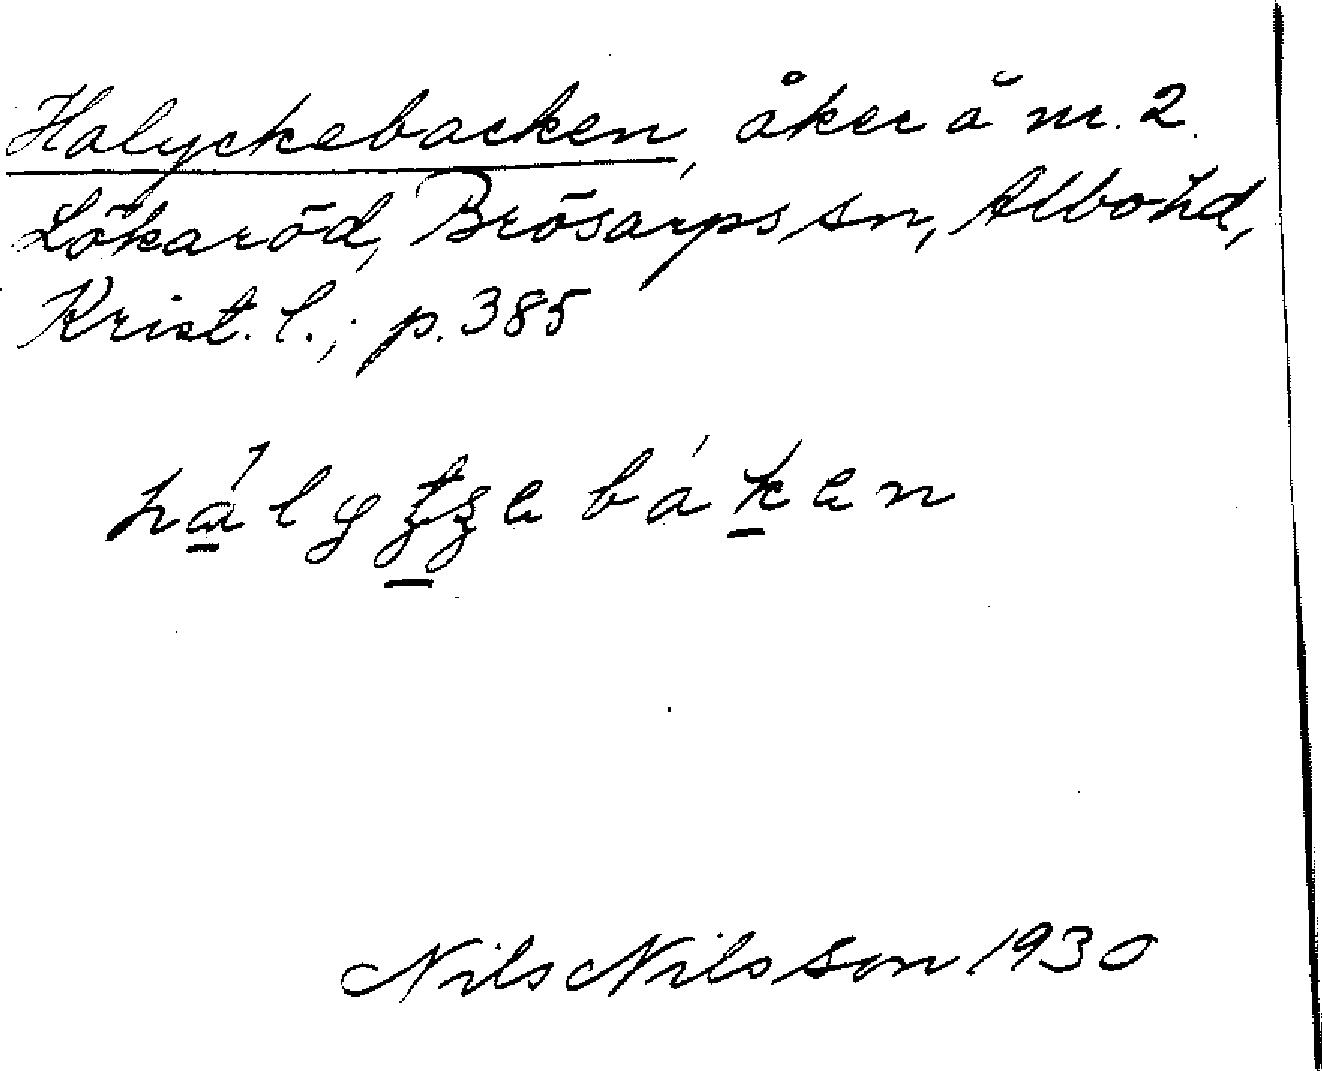 Halyckebacken, åker å nr. 2.
Lökaröd, Brösarps sn, Albo hd,
Krist. l.; p. 385
Nils Nilsson 1930